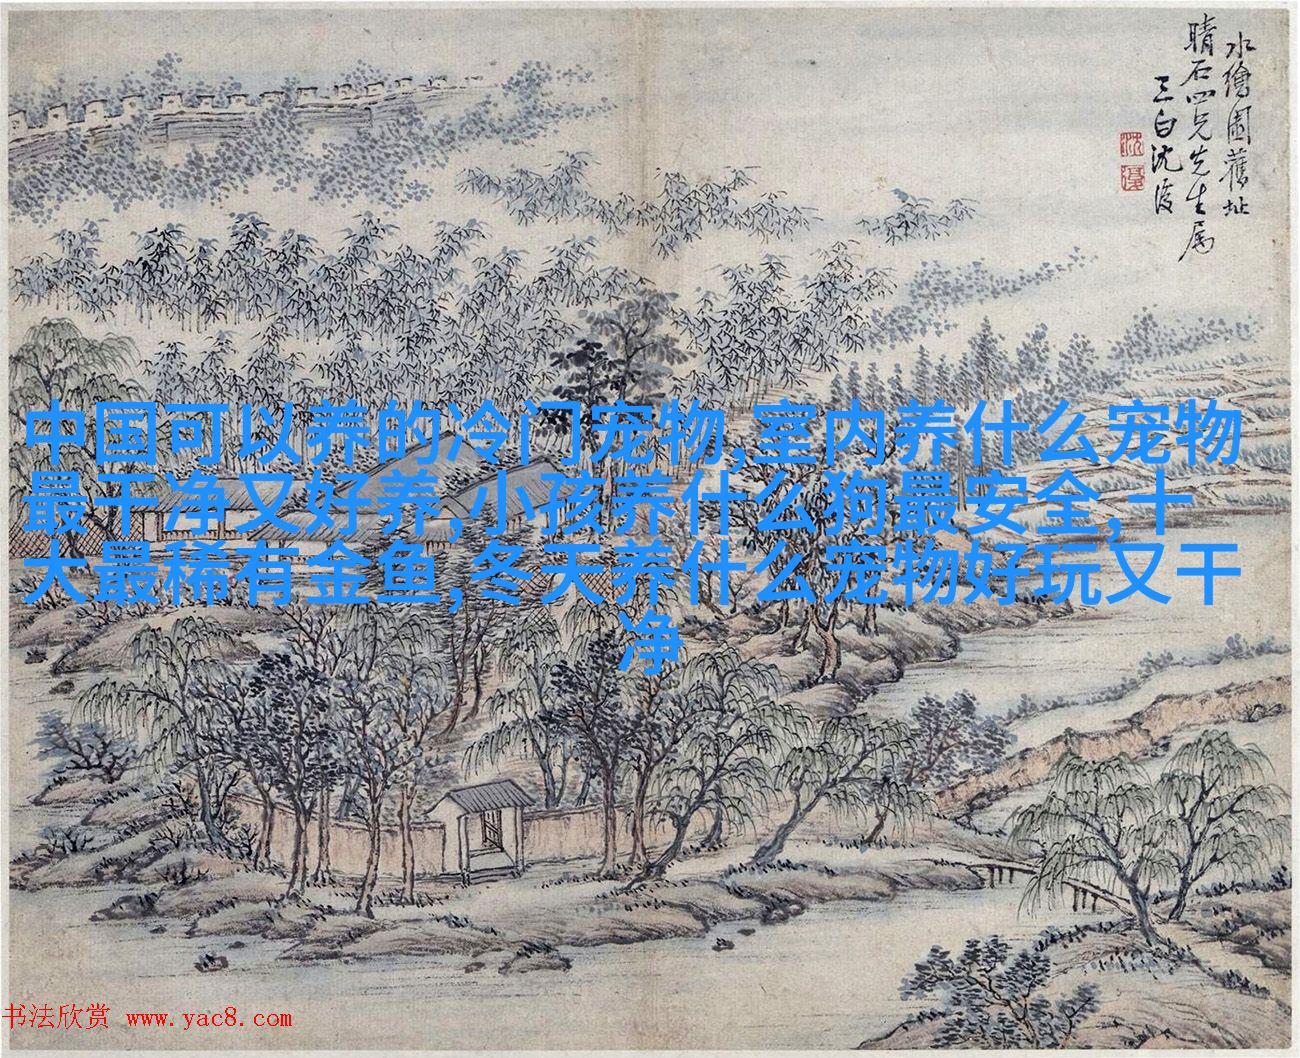 水繪園舊址
晴石四兄先生属
三白沈復
沈
復
中国可以养的冷门宠物,室内养什么宠物
最干净又好养,小孩养什么狗最安全,十
大最稀有金鱼,冬天养什么宠物好玩又干
净
书法欣赏 www.yac8.com